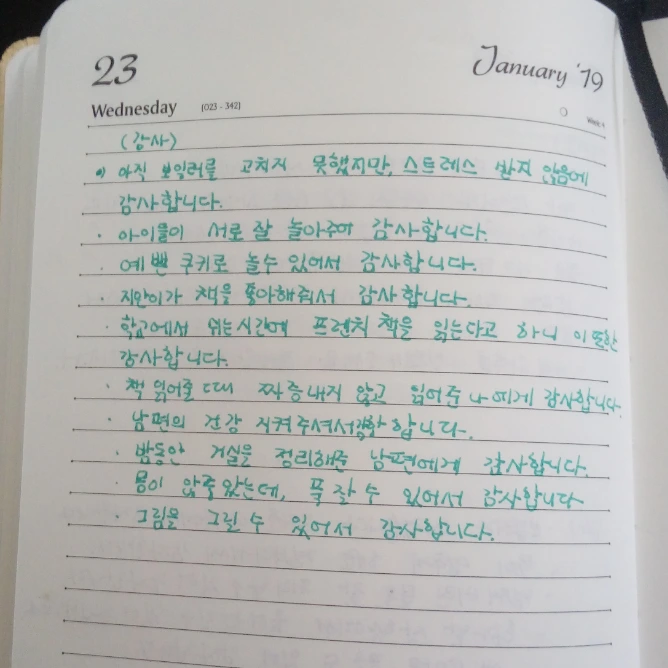 23
January '19
Wednesday [023 - 342]
Week 4
(감사)
아직 보일러를 고치지 못했지만, 스트레스 받지 않음에
감사합니다.
· 아이들이 서로 잘 놀아주어 감사합니다.
· 예쁜 쿠키로 놀수 있어서 감사합니다.
· 지안이가 책을 좋아해줘서 감사합니다.
· 학교에서 쉬는시간에 프렌치 책을 읽는다고 하니 이 또한
감사합니다.
· 책 읽어줄 때 짜증내지 않고 읽어준 나에게 감사합니다.
· 남편의 건강 지켜주셔서 감사합니다.
· 밤동안 거실을 정리해준 남편에게 감사합니다.
· 몸이 았는데, 푹 잘 수 있어서 감사합니다
· 그림을 그릴 수 있어서 감사합니다.